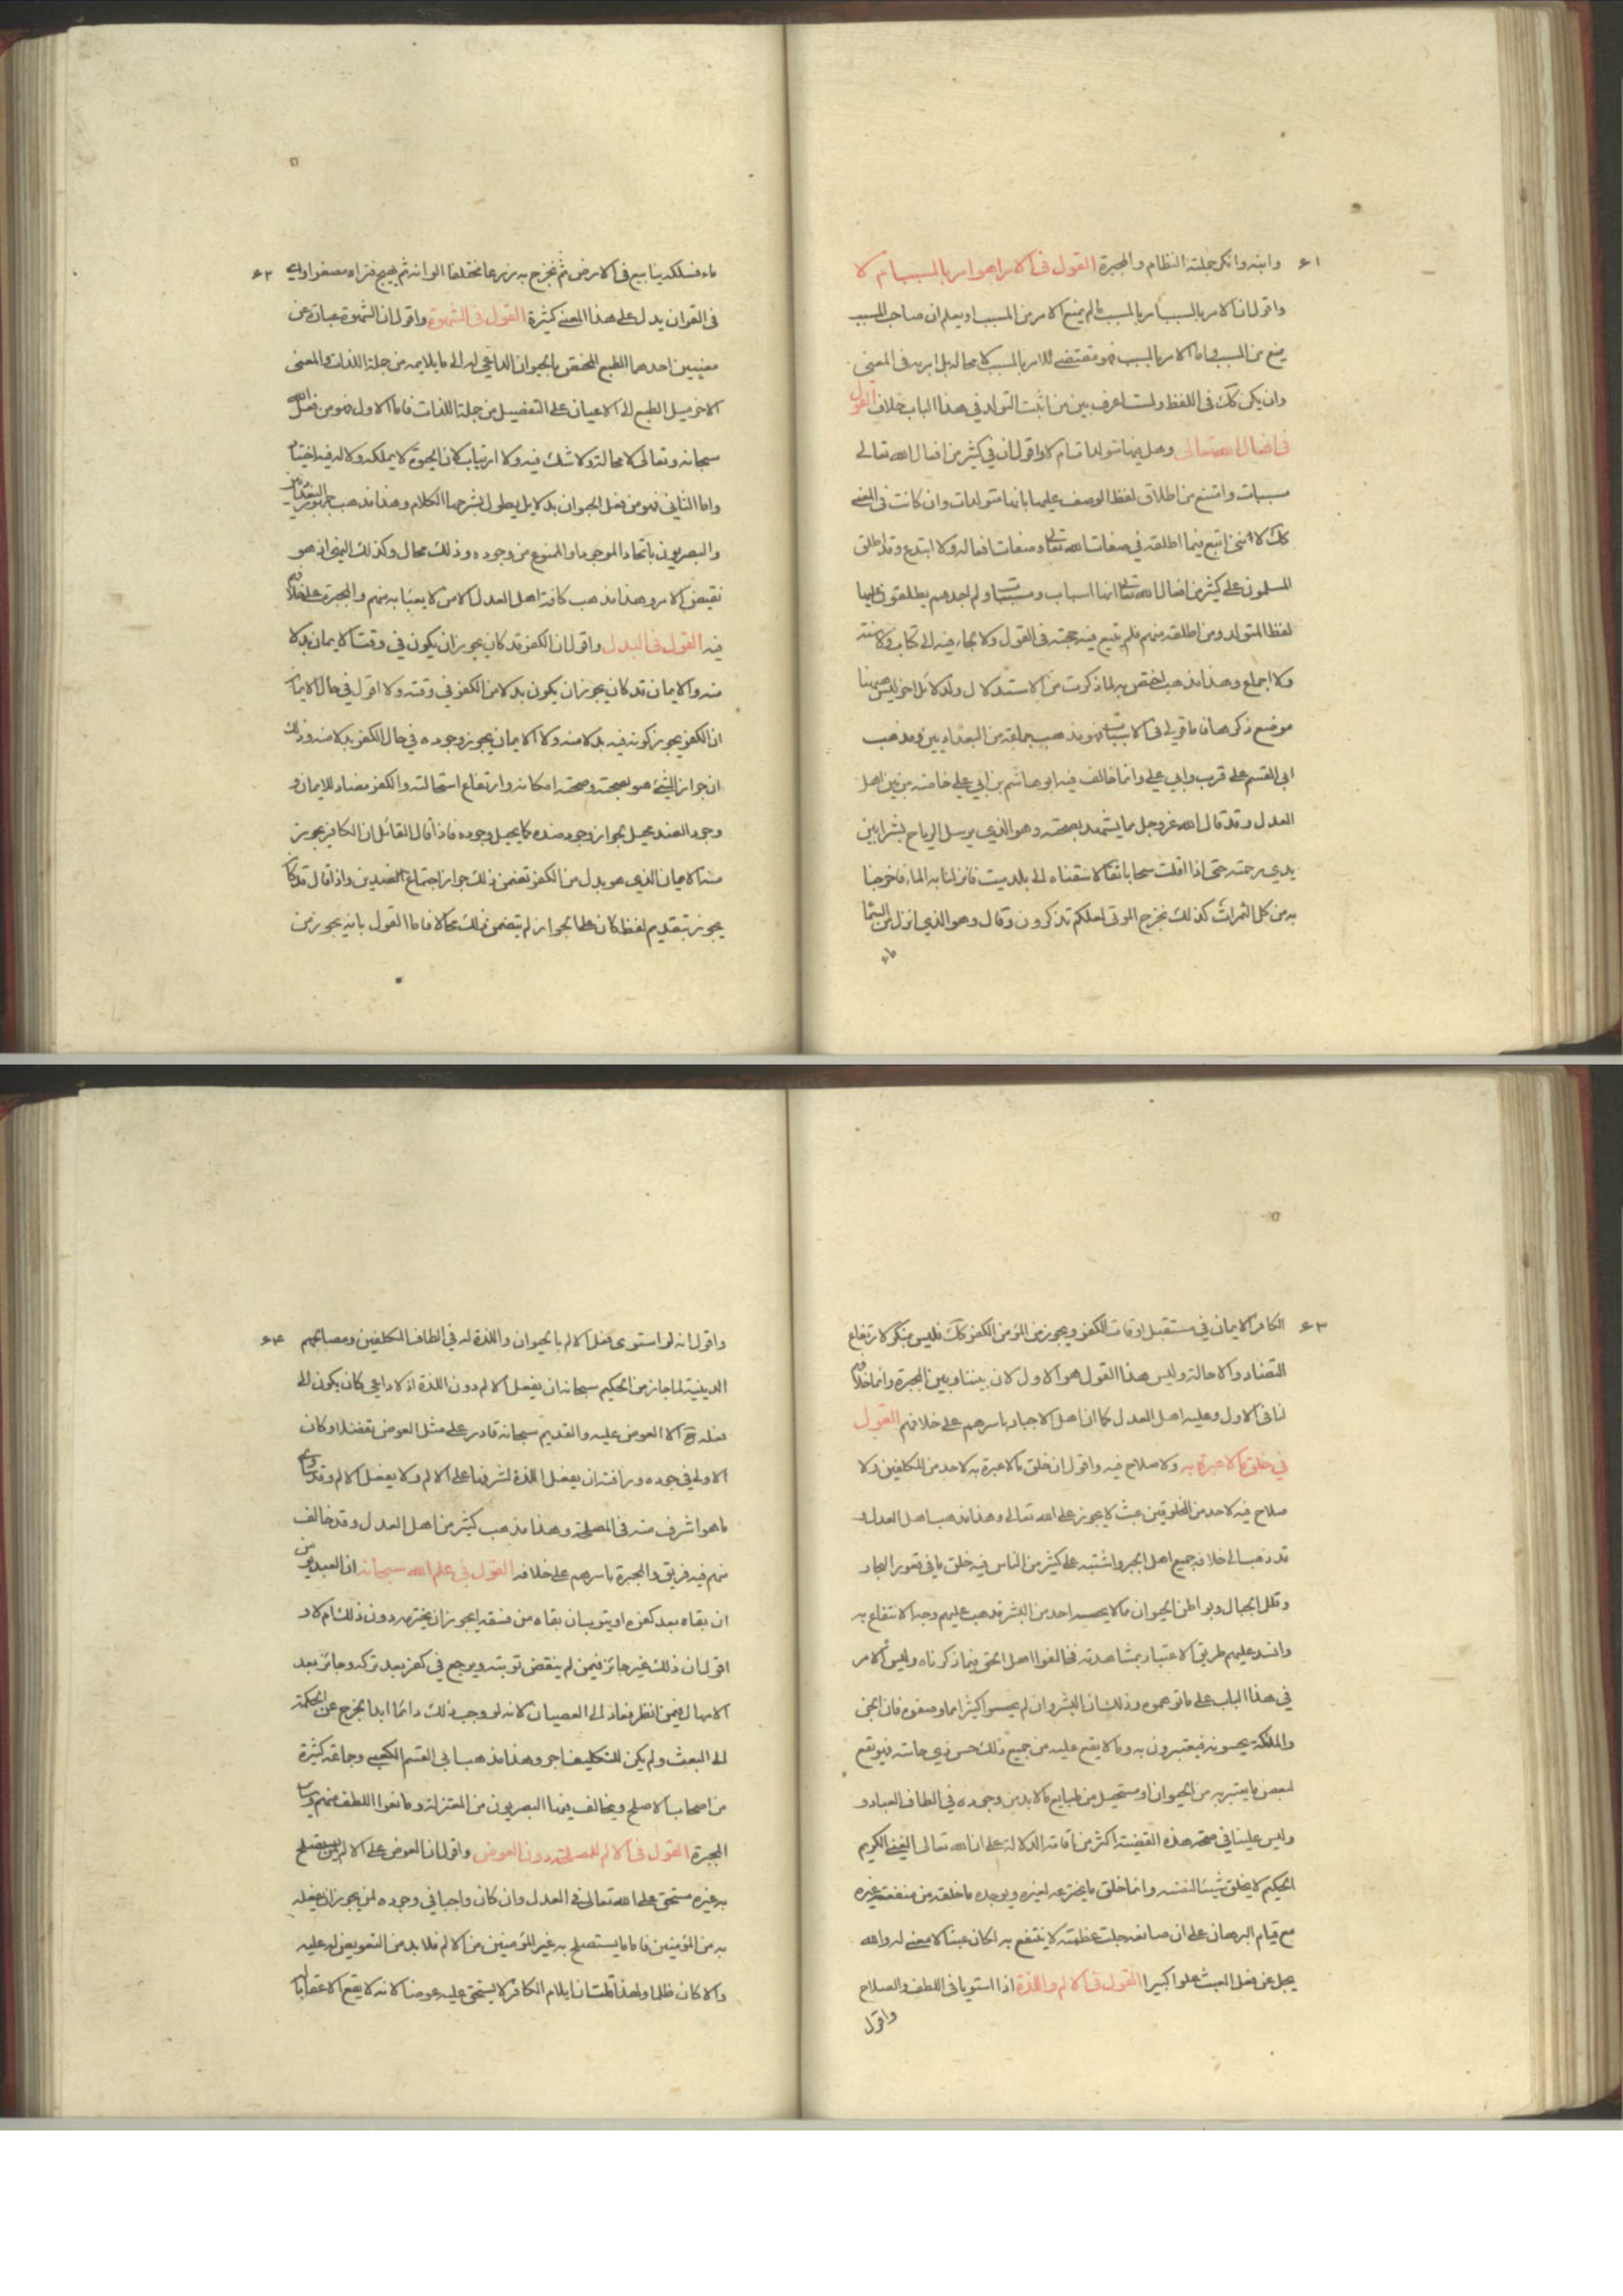 ٦١
وابنه وانكر جلته النظام والمجبرة القول فى الامر اهو امر بالمسبب ام لا
واقول ان الامر بالسبب امر بالمسبب ما لم يمنع الامر من المسبب او يعلم ان صاحب السبب
يمنع من المسبب فاما الامر بالمسبب فهو مقتضى للامر بالسبب لا محالة بل امر به فى المعنى
وان يكن كك فى اللفظ ولست اعرف بين من اثبت التولد فى هذا الباب خلافا القول
فى افعال الله تعالى وهل فيها متولدات ام لا واقول ان فى كثير من افعال الله تعالى
مسببات وامتنع من اطلاق لفظ الوصف عليها بانها متولدات وان كانت فى المعنى
كك لاننى اتبع فيما اطلقه فى صفات الله تعالى وصفات افعاله ولا ابتدع وقد اطلق
المسلمون على كثير من افعال الله تعالى انها اسباب ومسببات ولم اجدهم يطلقون عليها
لفظ المتولد ومن اطلقه منهم فلم يتبع فيه حجة فى القول ولا لجاء فيه الى كتاب ولا سنة
ولا اجماع وهذا مذهب اختص به لما ذكرت من الاستدلال ولدلائل اخر ليس هيهنا
موضع ذكرها فاما قولى فى الاسباب فهو مذهب جماعة من البغداديين ومذهب
ابى القسم على قرب وابى على وانما خالف فيه ابو هاشم بن ابى على خاصة من بين اهل
العدل وقد قال الله عز وجل مما يشهد بصحته وهو الذى يرسل الرياح بشرا بين
يدى رحمته حتى اذا اقلت سحابا ثقالا سقناه الى بلد ميت فانزلنا به الماء فاخرجنا
به من كل الثمرات كذلك نخرج الموتى لعلكم تذكرون وقال وهو الذى انزل من السما
ماء
٦٢
ماء فسلكه ينابيع فى الارض ثم نخرج به زرعا مختلفا الوانه ثم يهيج فتراه مصفرا واى
فى القران يدل على هذا المعنى كثيرة القول فى الشهوة واقول ان الشهوة عبارة عن
معنيين احدهما الطبع المختص بالحيوان الداعى له الى ما يلايمه من جملة اللذات والمعنى
الاخر ميل الطبع الى الاعيان على التفصيل من جملة اللذات فاما الاول فهو من فعل الله
سبحانه وتعالى لا محالة ولا شك فيه ولا ارتياب لان الحيوة لا يملكه ولا له فيه اختيا
واما الثانى فهو من فعل الحيوان بدلايل يطول بشرحها الكلام وهذا مذهب جمهور البغدا
والبصريون باتحاد الموجود او الممنوع من وجوده وذلك محال وكذلك النهى اذ هو
نقيض الامر وهذا مذهب كافة اهل العدل الا من لا يعبا به منهم والمجبرة على خلافهم
فيه القول فى البدل واقول ان الكفر قد كان يجوز ان يكون فى وقت الايمان بدلا
منه والايمان قد كان يجوز ان يكون بدلا من الكفر فى وقته ولا اقول فى حال الايما
ان الكفر يجوز كونه فيه بدلا منه ولا الايمان يجوز وجوده فى حال الكفر بدلا منه وذلك
ان جواز الشئ هو بصحته وصحته امكانه وارتفاع استحالته والكفر مضاد للايمان و
وجود الضد يحيل جواز وجود ضده كما يحيل وجوده فاذا قال القائل ان الكافر يجوز
منه الايمان الذى هو بدل من الكفر تضمن ذلك جواز اجتماع الضدين واذا قال قد كا
يجوز بتقديم لفظ كان على الجواز لم يتضمن ذلك محالا فاما القول بانه يجوز من
٦٣
الكافر الايمان فى مستقبل اوقات الكفر ويجوز من المؤمن الكفر كك فليس بمنكر لارتفاع
التضاد والاحالة وليس هذا القول هو الاول لان بيننا وبين المجبرة وانما خلافهم
لنا فى الاول وعليه اهل العدل كما ان اهل الاجبار باسرهم على خلافهم القول
فى خلق ما لا عبرة به ولا صلاح فيه واقول ان خلق ما لا عبرة به لاحد من المكلفين ولا
صلاح فيه لاحد من المخلوقين عبث لا يجوز على الله تعالى وهذا مذهب اهل العدل و
قد ذهب الى خلافه جميع اهل الجبر واشتبه على كثير من الناس فيه خلق ما فى قعور البحار
وقلل الجبال وبواطن الحيوان ما لا يحسه احد من البشر فذهب عليهم وجه الانتفاع به
وانسد عليهم طريق الاعتبار بمشاهدته فخالفوا اهل الحق فيما ذكرناه وليس الامر
فى هذا الباب على ما توهموه وذلك ان البشر وان لم يحسوا كثيرا مما وصفوه فان الجن
والملئكة يحسونه فيعتبرون به وما لا يقع عليه من جميع ذلك حس ذى حاسة فهو يقع
لبعض ما يعتبر به من الحيوان او مستحيل من طبايع ما لا بد من وجوده فى الطاف العباد و
وليس علينا فى صحة هذه القضية اكثر من اقامة الدلالة على ان الله تعالى الغنى الكريم
الحكيم لا يخلق شيئا لنفسه وانما خلق ما يخترعه لغيره ويوجده ما خلقه من منفعة غيره
مع قيام البرهان على ان صانعه جلت عظمته لا ينتفع به لكان عبثا لا معنى له والله
يجل عن فعل العبث علوا كبيرا القول فى الالم واللذة اذا استويا فى اللطف والصلاح
واقول
٦٤
واقول انه لو استوى فعل الالم بالحيوان واللذة له فى الطاف المكلفين ومصالحهم
الدينية لما جاز من الحكيم سبحانه ان يفعل الالم دون اللذة اذ لا داعى كان يكون الى
فعله ح الا العوض عليه والقديم سبحانه قادر على مثل العوض تفضلا وكان
الاولى فى جوده ورافته ان يفعل اللذة لشرفها على الالم ولا يفعل الالم وقد ساوى
ما هو اشرف منه فى المصلحة وهذا مذهب كثير من اهل العدل وقد خالف
منهم فيه فريق والمجبرة باسرهم على خلافه القول فى علم الله سبحانه ان العبد يؤمن
ان بقاه بعد كفره او يتوب ان بقاه من فسقه ايجوز ان يخترمه دون ذلك ام لا و
اقول ان ذلك غير جائز فيمن لم ينقض توبته ويرجع فى كفر بعد تركه وجائز بعد
الامهال فيمن انظر فعاد الى العصيان لانه لو وجب ذلك دائما ابدا لخرج عن الحكمة
الى العبث ولم يكن للتكليف اجر وهذا مذهب ابى القسم الكعبى وجماعة كثيرة
من اصحاب الاصلح ويخالف فيها البصريون من المعتزلة ومانعوا اللطف منهم وسا
المجبرة القول فى الالم للمصلحة دون العوض واقول ان العوض على الالم لمن يستصلح
به غيره مستحق على الله تعالى فى العدل وان كان واجبا فى وجوده لمن يجوز ان يفعله
به من المؤمنين فاما ما يستصلح به غير المؤمنين من الالم فلا بد من التعويض له عليه
والا كان ظلما ولهذا قلت ان ايلام الكافر لا يستحق عليه عوضا لانه لا يقع الا عقابا